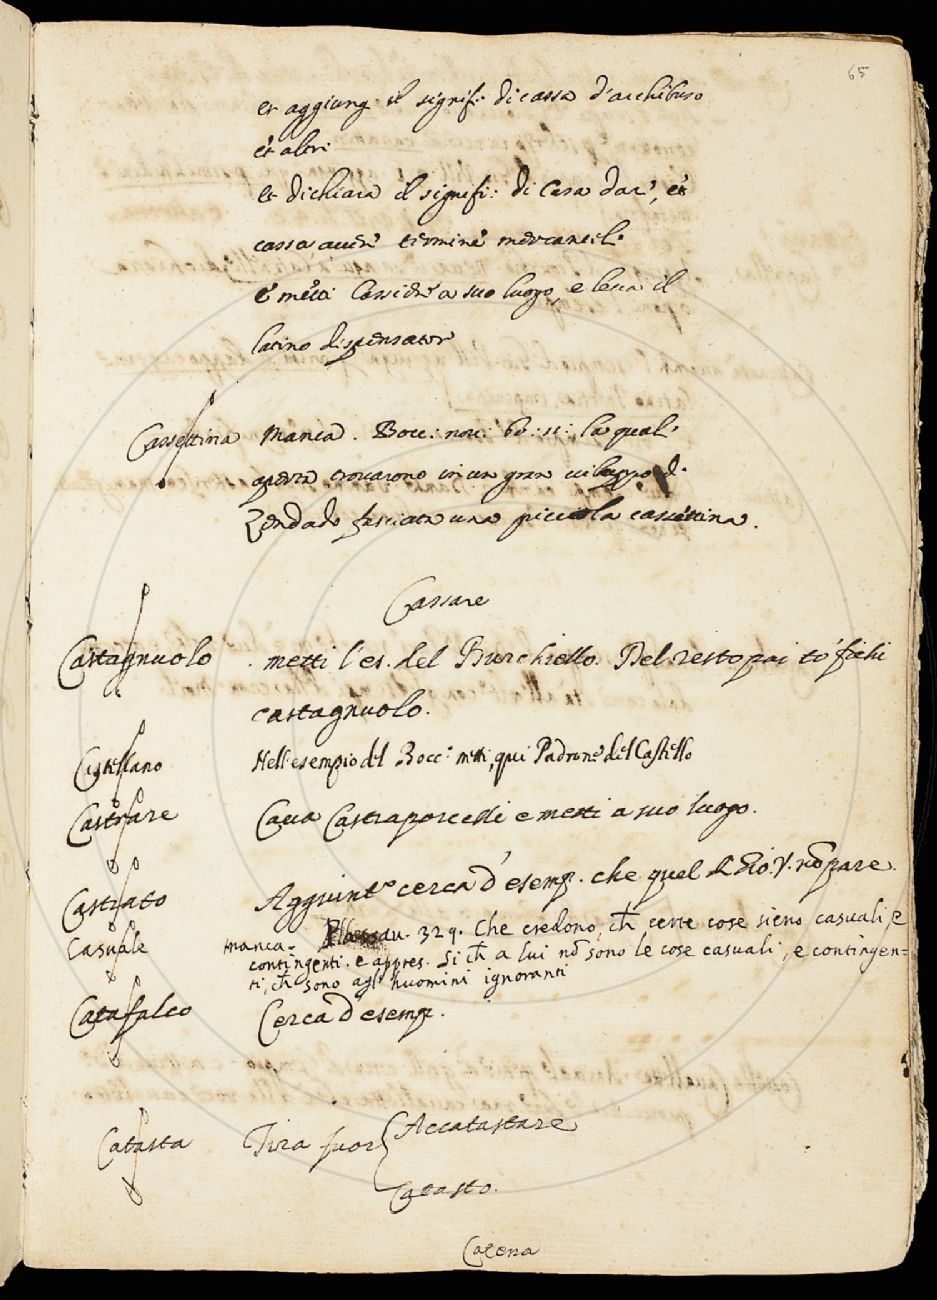 65
et aggiung. il signif: di cassa d'archibuso
et altri
et dichiara il signifi: di Cassa dar', et
cassa auer' termine mercantil'
e metti Cassier' a suo luogo, e leua il
latino dispensator
Cassettina manca. Bocc: nou: 60: 11: la qual'
aperta trouarono in un gran uiluppo di
Zendado fasciata una piccola cassettina.
Cassare
Castagnuolo . metti l'es. del Burchiello. Del resto poi to' fichi
castagnuolo.
Castellano Nell'esempio del Bocc: metti, qui Padrone del Castello
Castrare Caua Castraporcelli e metti a suo luogo.
Castrato Aggiunto cerca d'esemp. che quel di Gio. V. nō pare.
Casuale manca. au. 329. Che credono, ch̄ certe cose sieno casuali, e
contingenti. e appres. Si ch̄ a lui nō sono le cose casuali, e contingen=
ti, ch̄ sono agl'huomini ignoranti
Catafalco Cerca d'esemp.
Catasta Tira fuor { Accatastare
Catasto.
Catena